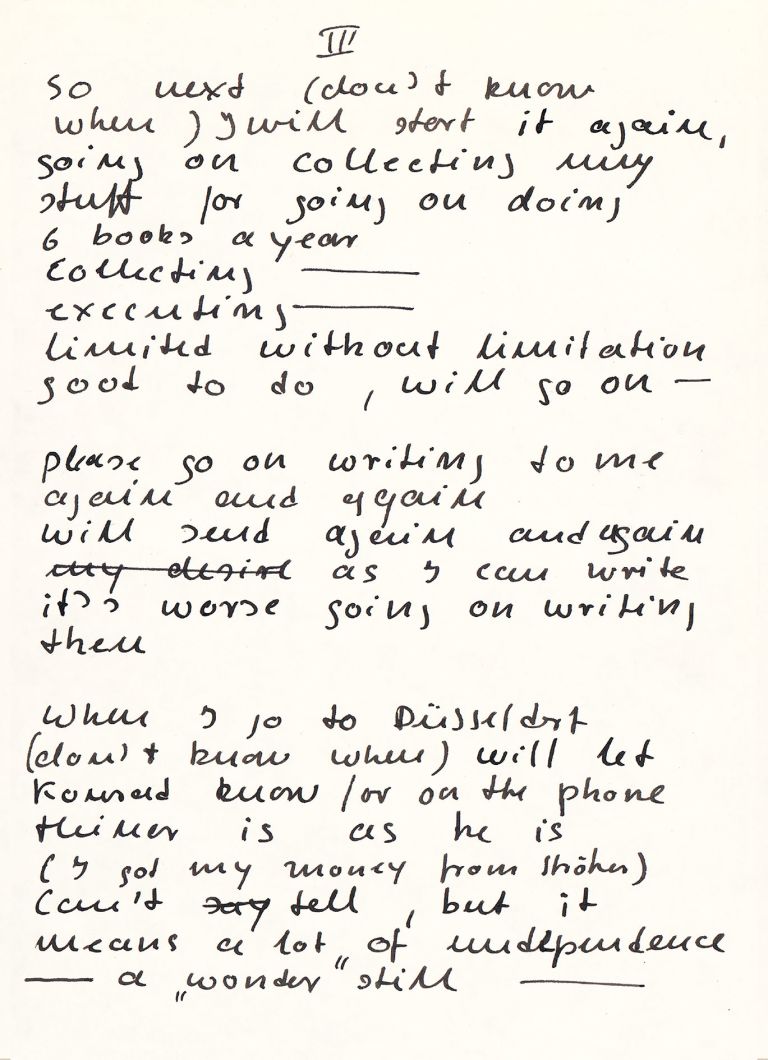 III
So next (don't know
when) I will start it again,
going on collecting my
stuff for going on doing
6 books a year
collecting ———
executing ———
limited without limitation
good to do , will go on —
please go on writing to me
again and again
will send again and again
my desire as I can write
it's worse going on writing
then
When I go to Düsseldorf
(don't know when) will let
Konrad know /or on the phone
theiner is as he is
( I got my money from Ströher)
Can't say tell , but it
means a lot of undependence
—— a „wonder“ still ———